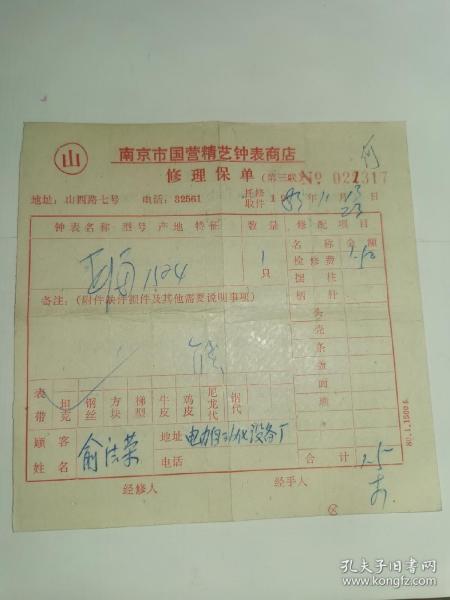 山
南京市国营精艺钟表商店
修理保单(第三联) № 021317
地址：山西路七号 电话：32561
托修
取件
年 11 月 13 日
23
钟表名称 型号 产地 特征 数量 修配项目
1
只
名称 金额
检修费
摆柱
柄针
头
壳
条
盘
面
备注：(附件缺件损件及其他需要说明事项)
表带 坦克 钢丝 方块 梯型 牛皮 鸡皮 尼龙代 钢代
顾客姓名 俞法荣
地址 电力自动化设备厂
电话
合计 1.5
经修人 经手人
80.1.1500本
孔夫子旧书网
www.kongfz.com